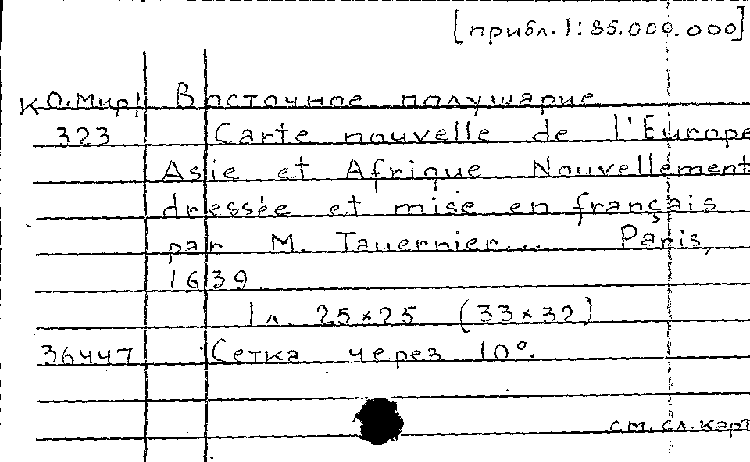 [прибл. 1:85.000.000]
К О.Мир/ Восточное полушарие
323 Carte nouvelle de l'Europe
Asie et Afrique Nouvellement
dressée et mise en français
par M. Tavernier... Paris,
1639.
1 л. 25×25 (33×32)
36447 Сетка через 10°.
см. сл. карт